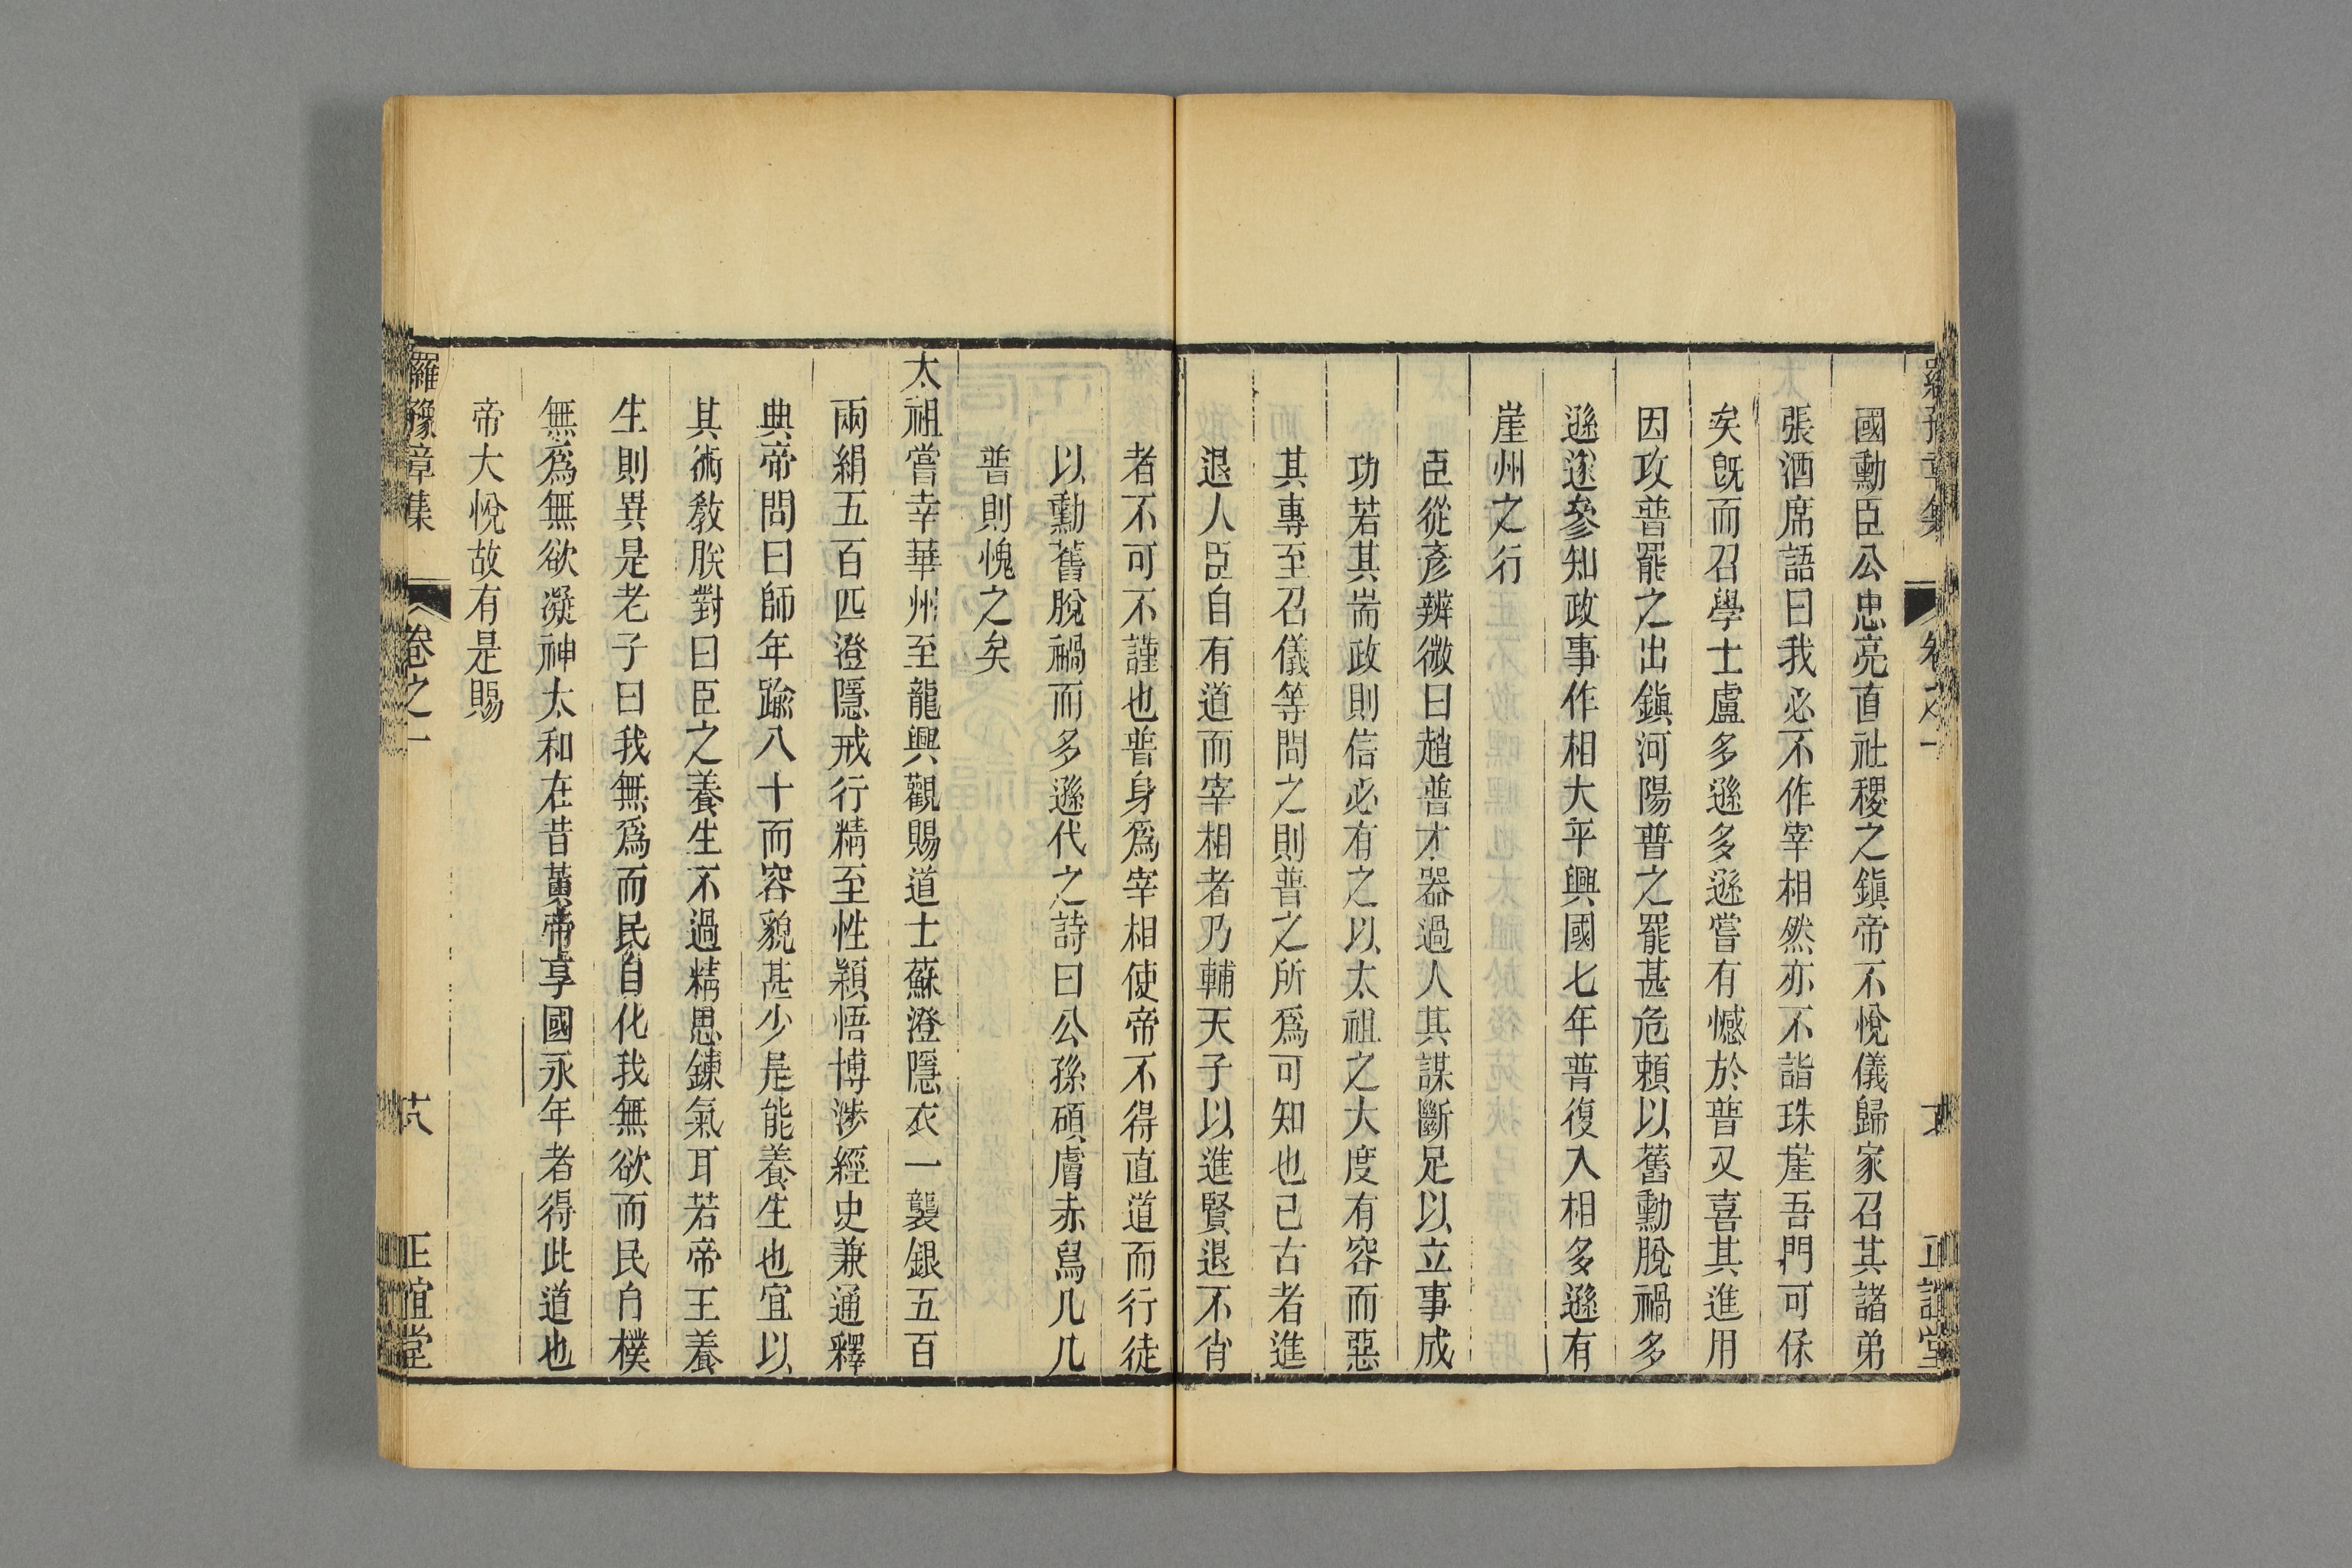 國勳臣公忠亮直社稷之鎭帝不悅儀歸家召其諸弟
張酒席語曰我必不作宰相然亦不詣珠崖吾門可保
矣旣而召學士盧多遜多遜嘗有憾於普又喜其進用
因攻普罷之出鎭河陽普之罷甚危賴以舊勳脫禍多
遜遂參知政事作相大平興國七年普復入相多遜有
崖州之行
臣從彥辨微曰趙普才器過人其謀斷足以立事成
功若其耑政則信必有之以太祖之大度有容而惡
其專至召儀等問之則普之所爲可知也已古者進
退人臣自有道而宰相者乃輔天子以進賢退不肖
者不可不謹也普身爲宰相使帝不得直道而行徒
以勳舊脫禍而多遜代之詩曰公孫碩膚赤舄几几
普則愧之矣
太祖嘗幸華州至龍興觀賜道士蘇澄隱衣一襲銀五百
兩絹五百匹澄隱戒行精至性穎悟博涉經史兼通釋
典帝問曰師年踰八十而容貌甚少是能養生也宜以
其術敎朕對曰臣之養生不過精思鍊氣耳若帝王養
生則異是老子曰我無爲而民自化我無欲而民自樸
無爲無欲凝神太和在昔黃帝享國永年者得此道也
帝大悅故有是賜
羅豫章集
卷之一
正誼堂